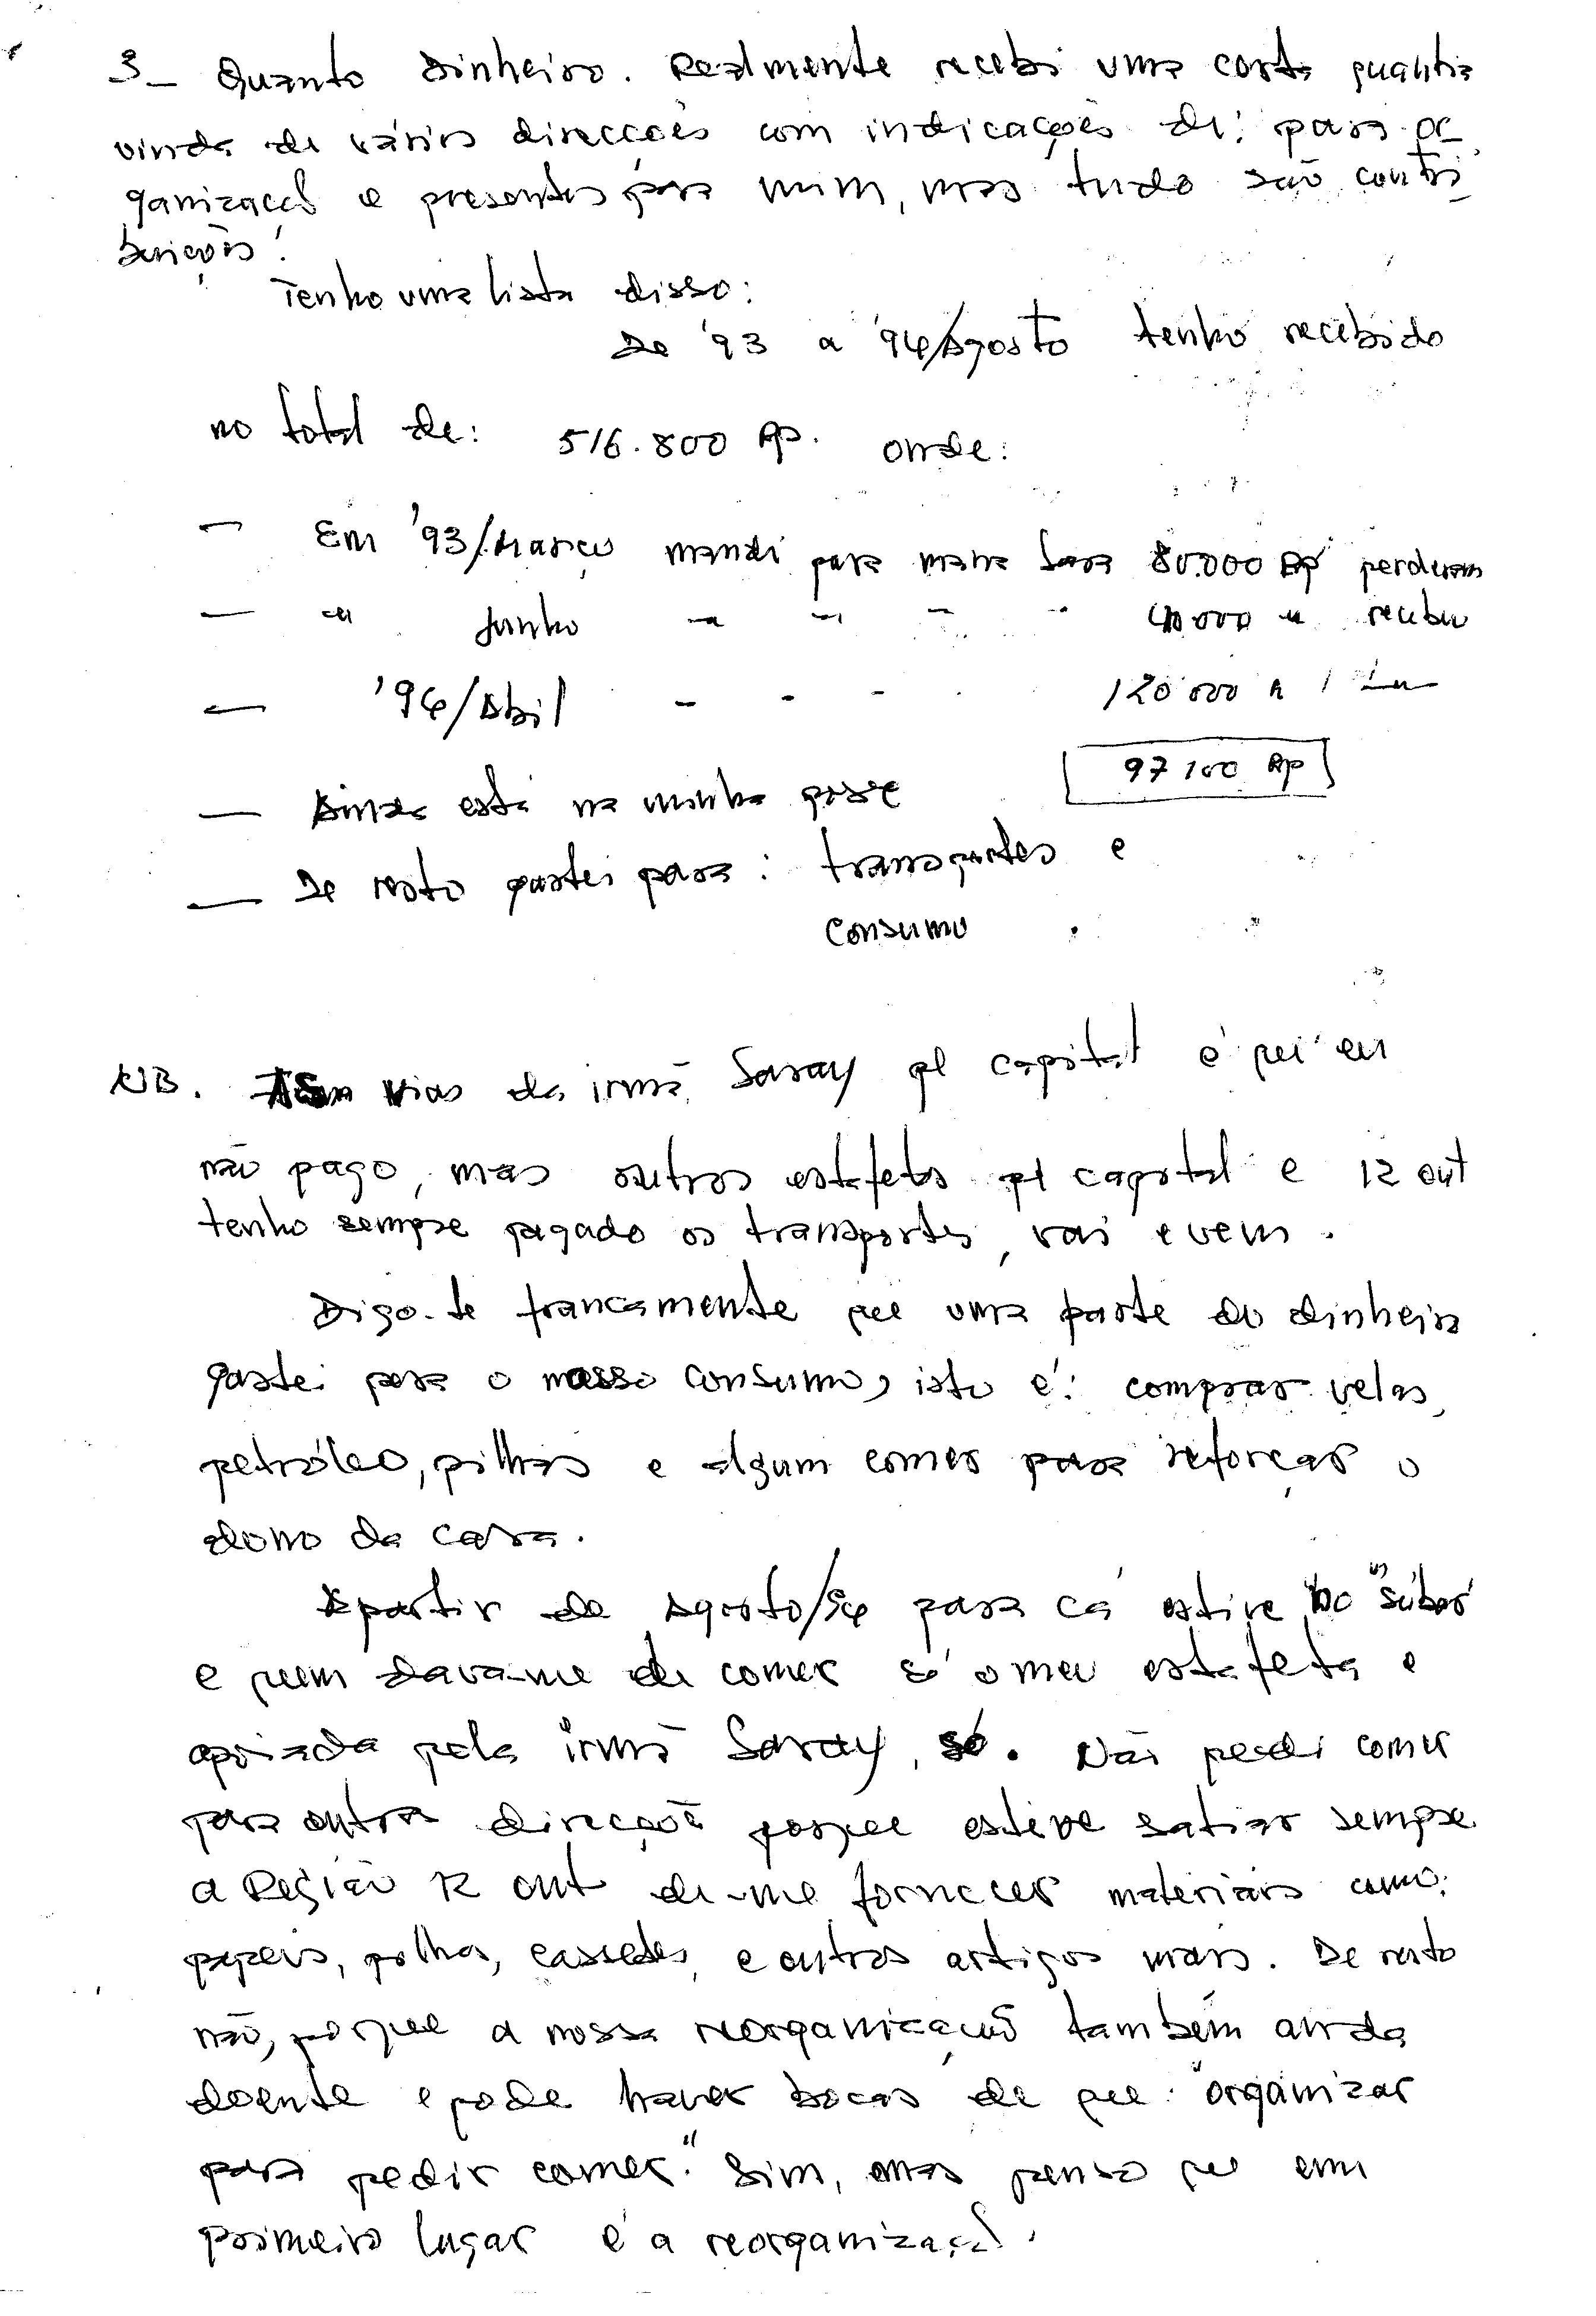 3 - Quanto dinheiro. Realmente recebi uma certa quantia
vinda de vários direcções com indicações de: para or-
ganização e presentes para mim, mas tudo são contri-
buições!
Tenho uma lista disso:
De '93 a '94/Agosto tenho recebido
no total de: 516.800 Rp. onde:
- Em '93/Março mandi para mana Sara 80.000 Rp perderam
- " Junho " " " " 40.000 " recebeu
- '94/Abril - - - 120.000
- Ainda está na minha posse 97 100 Rp
- De resto gastei para: transportes e
consumo
NB. As vias da irmã Saray pl capital é que eu
não pago, mas outros estafetas pl capital e 12 out
tenho sempre pagado os transportes, vai e vem.
Digo-te francamente que uma parte do dinheiro
gastei para o nosso consumo, isto é: comprar velas,
petróleo, pilhas e algum comer para reforçar o
dono da casa.
Apartir de Agosto/94 para cá estive no "súbor"
e quem dava-me de comer só o meu estafeta e
apoiada pela irmã Saray, só. Não pedi comer
para outra direcção porque estive sempre
a Região 12 out de-me fornecer materiais como:
papeis, pilhas, cassetes, e outros artigos mais. De resto
não, porque a nossa reorganização também anda
doente e pode haver bocas de que: "organizar
para pedir comer." Sim, mas penso que em
primeiro lugar é a reorganização.